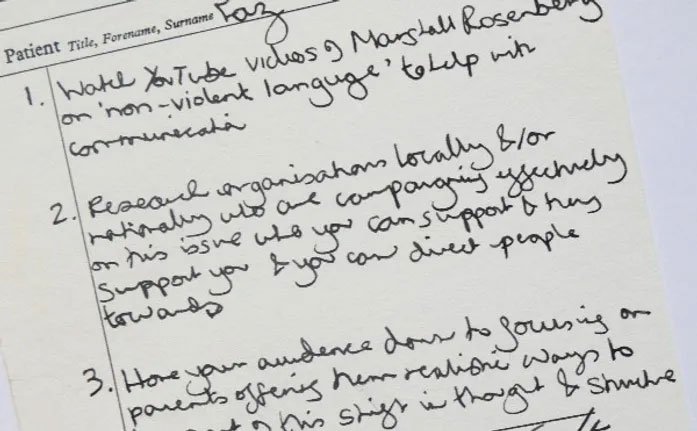 Patient Title, Forename, Surname Faz
1. Watch YouTube videos of Marshall Rosenberg
on 'non-violent language' to help with
communication
2. Research organisations locally &/or
nationally who are campaigning effectively
on this issue who you can support & they
support you & you can direct people
towards
3. Hone your audience down to focusing on
parents offering them realistic ways to
of this shift in thought & structure